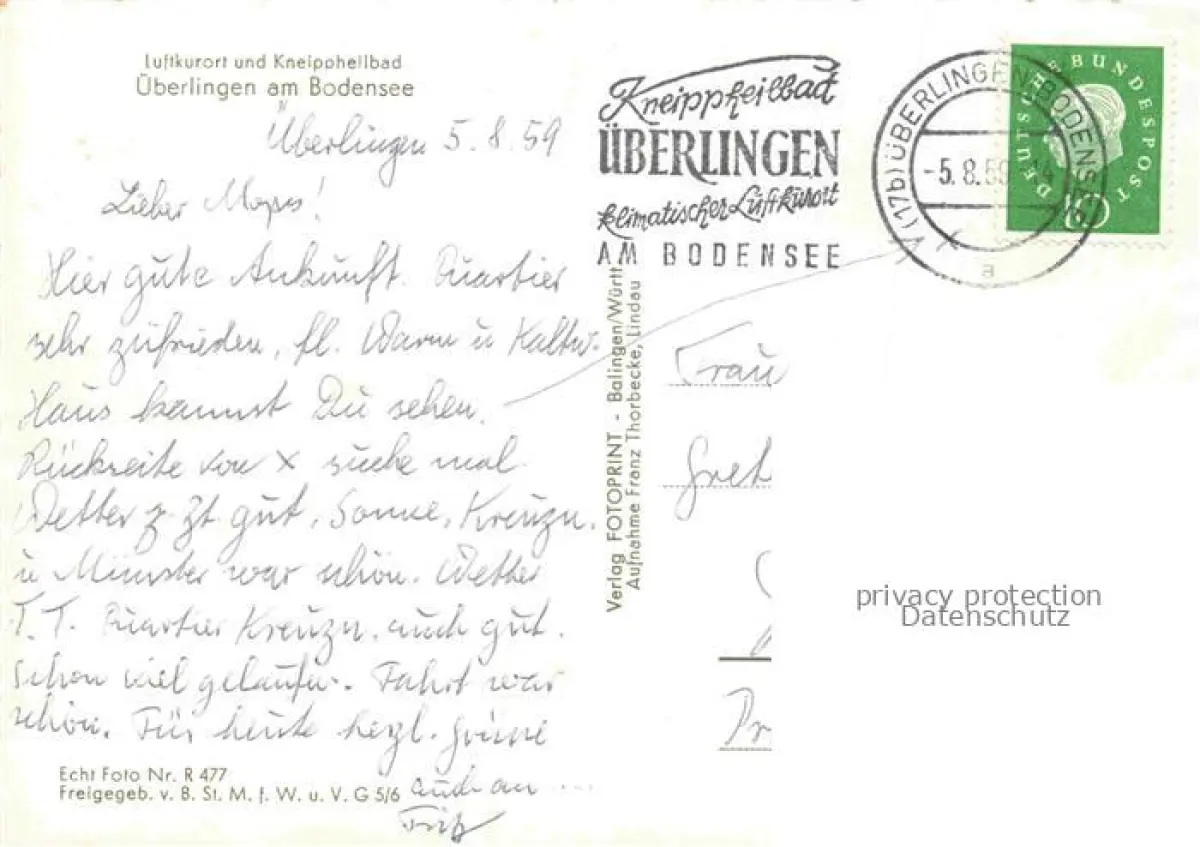 Luftkurort und Kneippheilbad
Überlingen am Bodensee
Überlingen 5.8.59
Lieber Mops!
Hier gute Ankunft. Quartier
sehr zufrieden, fl. Warm u Kaltw.
Haus kannst Du sehen.
Rückseite von x suche mal
Wetter z. Zt. gut, Sonne, Kreuzn.
u Münster war schön. Wetter
T.T. Quartier Kreuzn. auch gut.
schon viel gelaufen. Fahrt war
schön. Für heute herzl. Grüsse
auch an ....
Fritz
Echt Foto Nr. R 477
Freigegeb. v. B. St. M. f. W. u. V. G 5/6
Verlag FOTOPRINT - Balingen/Württ
Aufnahme Franz Thorbecke, Lindau
Kneippheilbad
ÜBERLINGEN
klimatischer Luftkurort
AM BODENSEE
(17b) ÜBERLINGEN/BODENSEE
-5.8.59
a
DEUTSCHE BUNDESPOST
10
Frau
Gret
privacy protection
Datenschutz